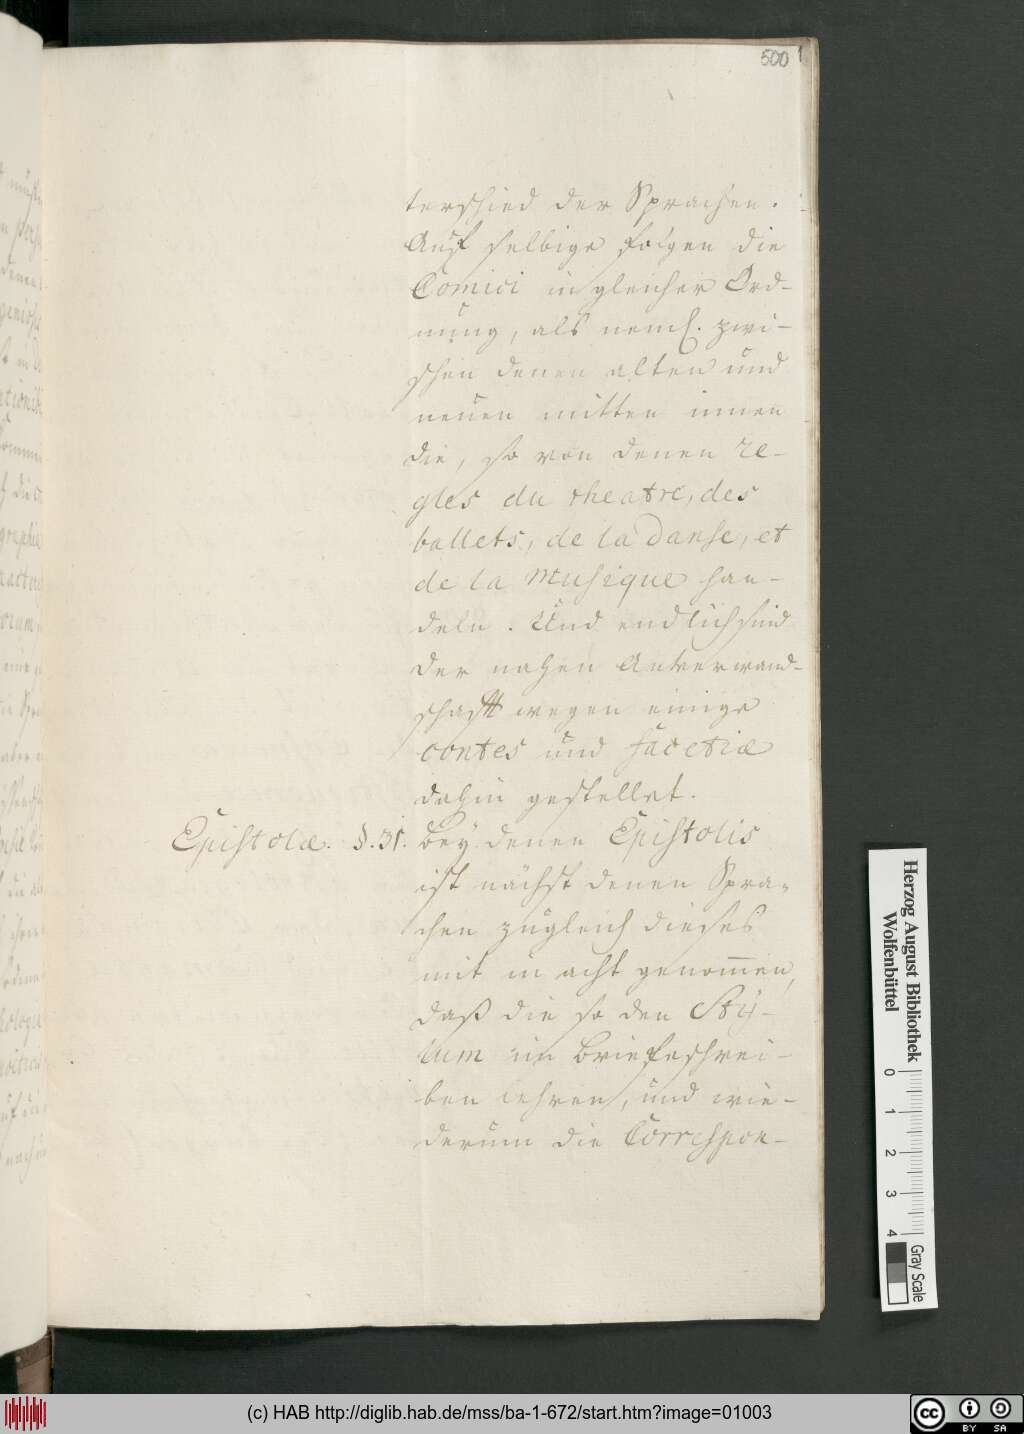 500
terschied der Sprachen.
Auf selbige folgen die
Comici in gleicher Ord-
nung, als neml. zwi-
schen denen alten und
neuen mitten innen
die, so von denen re-
gles du theatre, des
ballets, de la danse, et
de la Musique han-
deln. Und endlich sind
der nahen Anverwand-
schafft wegen einige
contes und facetiæ
dahin gestellet.
Epistolæ. §. 31. Bey denen Epistolis
ist nächst denen Spra-
chen zugleich dieses
mit in acht genommen,
daß die so den Sty-
lum im Briefeschrei-
ben lehren, und wie-
derum die Correspon-
Herzog August Bibliothek
Wolfenbüttel
0 1 2 3 4
Gray Scale
(c) HAB http://diglib.hab.de/mss/ba-1-672/start.htm?image=01003
cc BY SA